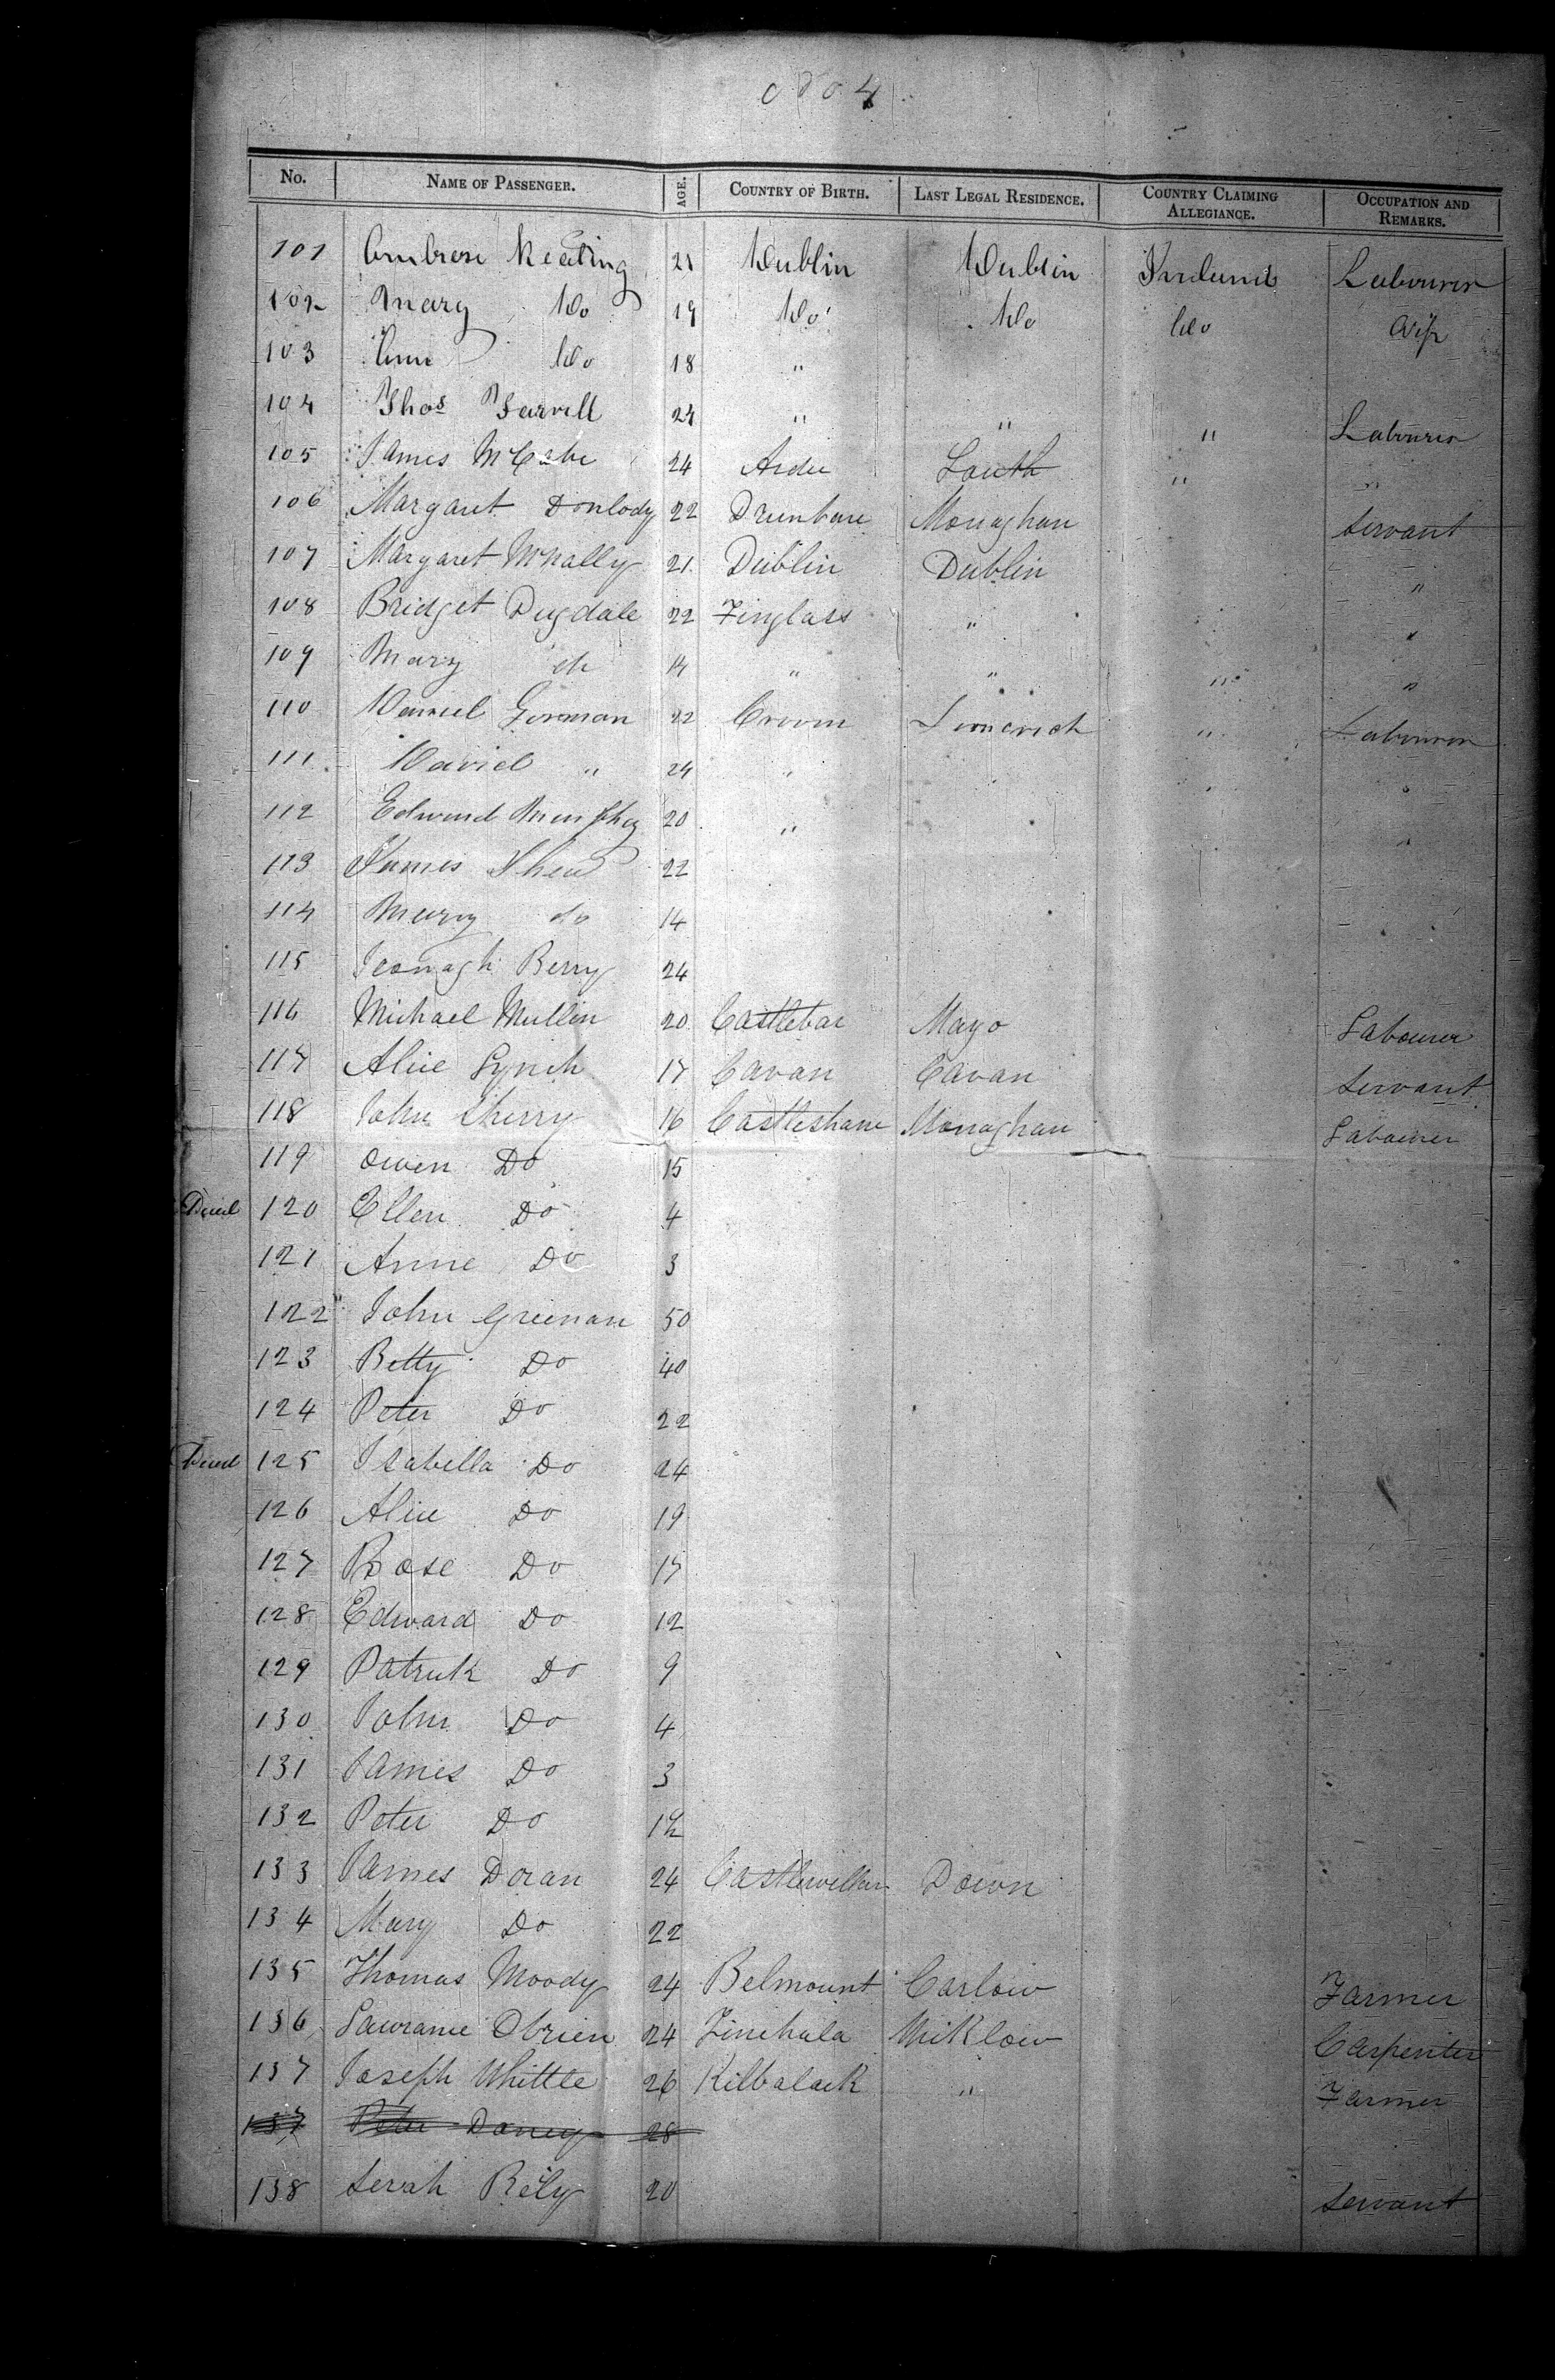 No. NAME OF PASSENGER. AGE. COUNTRY OF BIRTH. LAST LEGAL RESIDENCE. COUNTRY CLAIMING ALLEGIANCE. OCCUPATION AND REMARKS.
101 Ambrose Keating 21 Dublin Dublin Ireland Labourer
102 Mary Do 19 Do Do Do Wife
103 Ann Do 18 "
104 Thos Farrell 24 " " " Labourer
105 James McCabe 24 Ardee Louth " "
106 Margaret Donlody 22 Monaghan Servant
107 Margaret McNally 21 Dublin Dublin "
108 Bridget Dugdale 22 Finglass " "
109 Mary do 14 " " " "
110 Daniel Gorman 22 Croom Limerick " Labourer
111 David " 24 " " "
112 Edmund Murphy 20 " "
113 James Shea 22
114 Mary do 14
115 Berry 24
116 Michael Mullin 20 Castlebar Mayo Labourer
117 Alice Lynch 17 Cavan Cavan Servant
118 John Cherry 16 Castleshane Monaghan Labourer
119 Owen Do 15
Died 120 Ellen Do 4
121 Anne Do 3
122 John Greenan 50
123 Betty Do 40
124 Peter Do 22
Died 125 Isabella Do 24
126 Alice Do 19
127 Rose Do 17
128 Edward Do 12
129 Patrick Do 9
130 John Do 4
131 James Do 3
132 Peter Do
133 James Doran 24 Castlewellan Down
134 Mary Do 22
135 Thomas Moody 24 Belmount Carlow Farmer
136 Laurance Obrien 24 Wiklow Carpenter
137 Joseph Whittle 26 Kilbalack " Farmer
137 Peter 28
138 Serah Rely 20 Servant